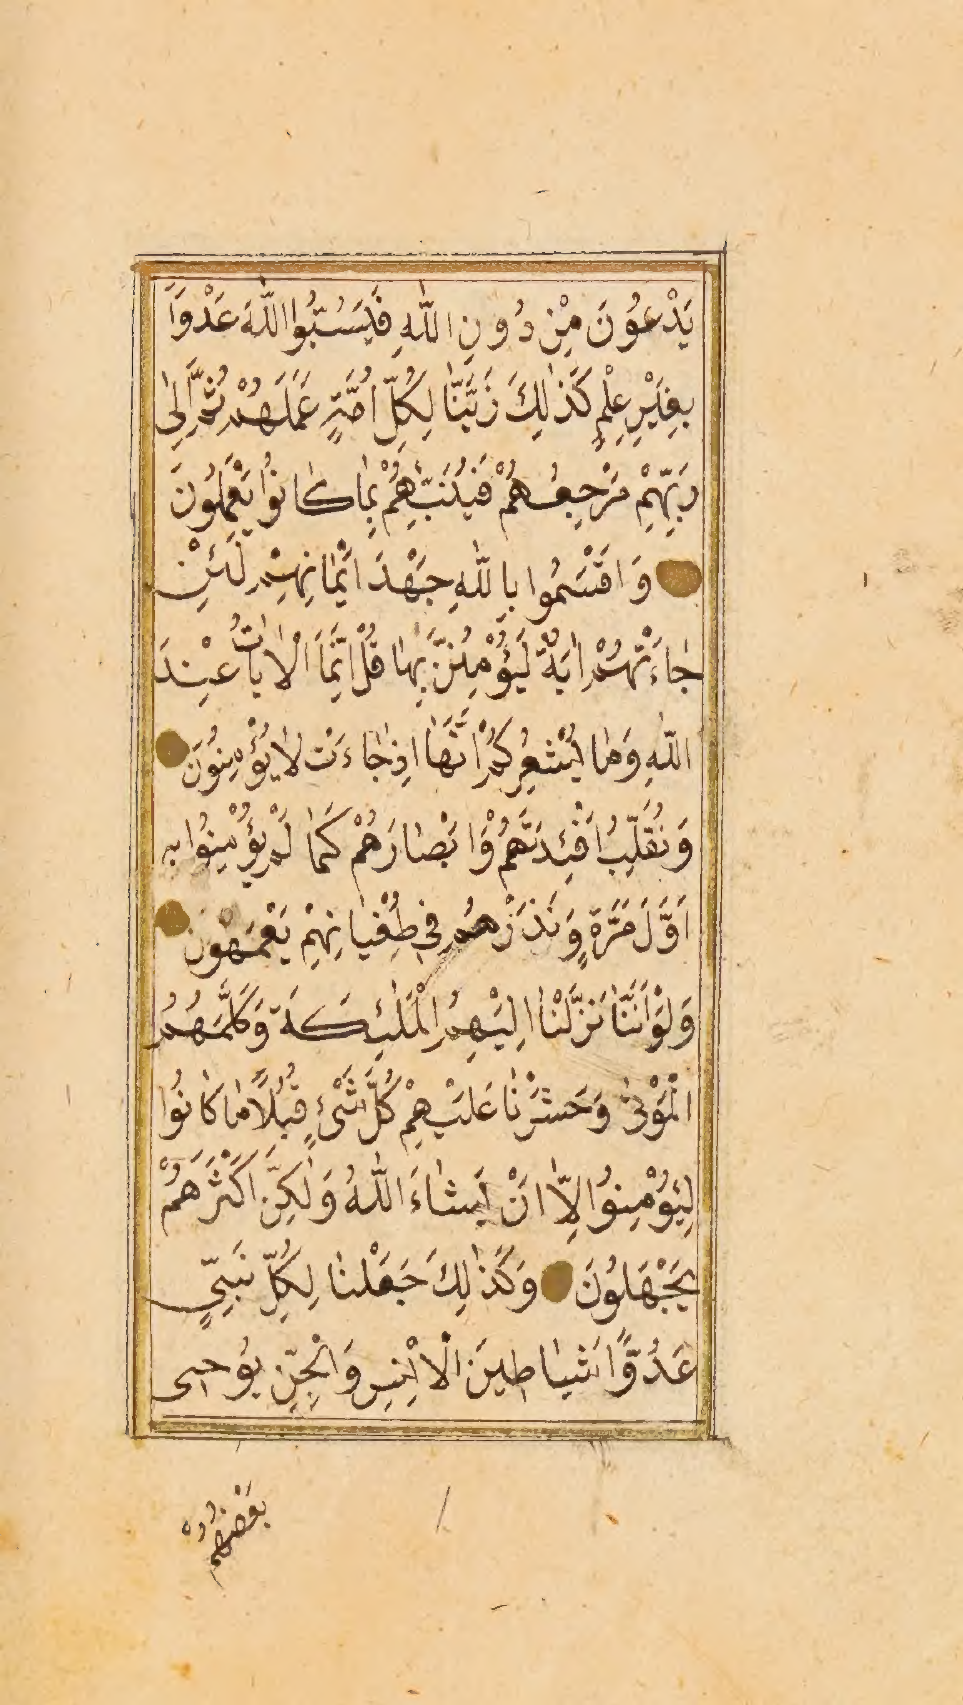 يَدْعُونَ مِنْ دُونِ اللّٰهِ فَيَسُبُّوا اللّٰهَ عَدْوًا
بِغَيْرِ عِلْمٍ كَذٰلِكَ زَيَّنَّا لِكُلِّ اُمَّةٍ عَمَلَهُمْ ثُمَّ اِلٰى
رَبِّهِمْ مَرْجِعُهُمْ فَيُنَبِّئُهُمْ بِمَا كَانُوا يَعْمَلُونَ
وَاَقْسَمُوا بِاللّٰهِ جَهْدَ اَيْمَانِهِمْ لَئِنْ
جَاءَتْهُمْ اٰيَةٌ لَيُؤْمِنُنَّ بِهَا قُلْ اِنَّمَا الْاٰيَاتُ عِنْدَ
اللّٰهِ وَمَا يُشْعِرُكُمْ اَنَّهَا اِذَا جَاءَتْ لَا يُؤْمِنُونَ
وَنُقَلِّبُ اَفْئِدَتَهُمْ وَاَبْصَارَهُمْ كَمَا لَمْ يُؤْمِنُوا بِه
اَوَّلَ مَرَّةٍ وَنَذَرُهُمْ فِي طُغْيَانِهِمْ يَعْمَهُونَ
وَلَوْ اَنَّنَا نَزَّلْنَا اِلَيْهِمُ الْمَلٰئِكَةَ وَكَلَّمَهُمُ
الْمَوْتٰى وَحَشَرْنَا عَلَيْهِمْ كُلَّ شَيْءٍ قُبُلًا مَا كَانُوا
لِيُؤْمِنُوا اِلَّا اَنْ يَشَاءَ اللّٰهُ وَلٰكِنَّ اَكْثَرَهُمْ
يَجْهَلُونَ وَكَذٰلِكَ جَعَلْنَا لِكُلِّ نَبِيٍّ
عَدُوًّا شَيَاطِينَ الْاِنْسِ وَالْجِنِّ يُوحِي
بَعْضُهُمْ